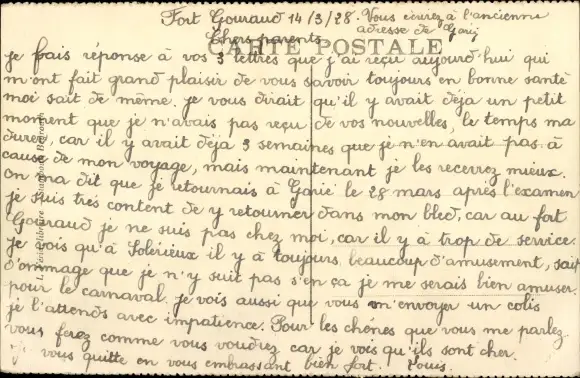 Fort Gouraud 14/3/28. Vous écurez à l'ancienne
adresse de Garie
Chers parents
CARTE POSTALE
Je fais réponse à vos 3 lettres que j'ai reçu aujourd'hui qui
m'ont fait grand plaisir de vous savoir toujours en bonne santé
moi sait de même. Je vous dirait qu'il y avait deja un petit
moment que je n'avais pas reçu de vos nouvelles, le temps ma
durer, car il y avait déjà 3 semaines que je n'en avait pas à
cause de mon voyage, mais maintenant je les recevrez mieux.
On ma dit que je retournais à Garie le 28 mars après l'examen
je suis très content de y retourner dans mon bled, car au fort
Gouraud je ne suis pas chez moi, car il y à trop de service.
Je vois qu'à Solérieux il y à toujours beaucoup d'amusement, sait
d'ommage que je n'y suit pas s'en ça je me serais bien amuser
pour le carnaval. Je vois aussi que vous m'envoyer un colis
je l'attends avec impatience. Pour les chénes que vous me parlez
vous ferez comme vous voudrez car je vois qu'ils sont cher.
Je vous quitte en vous embrassant bien fort. Louis.